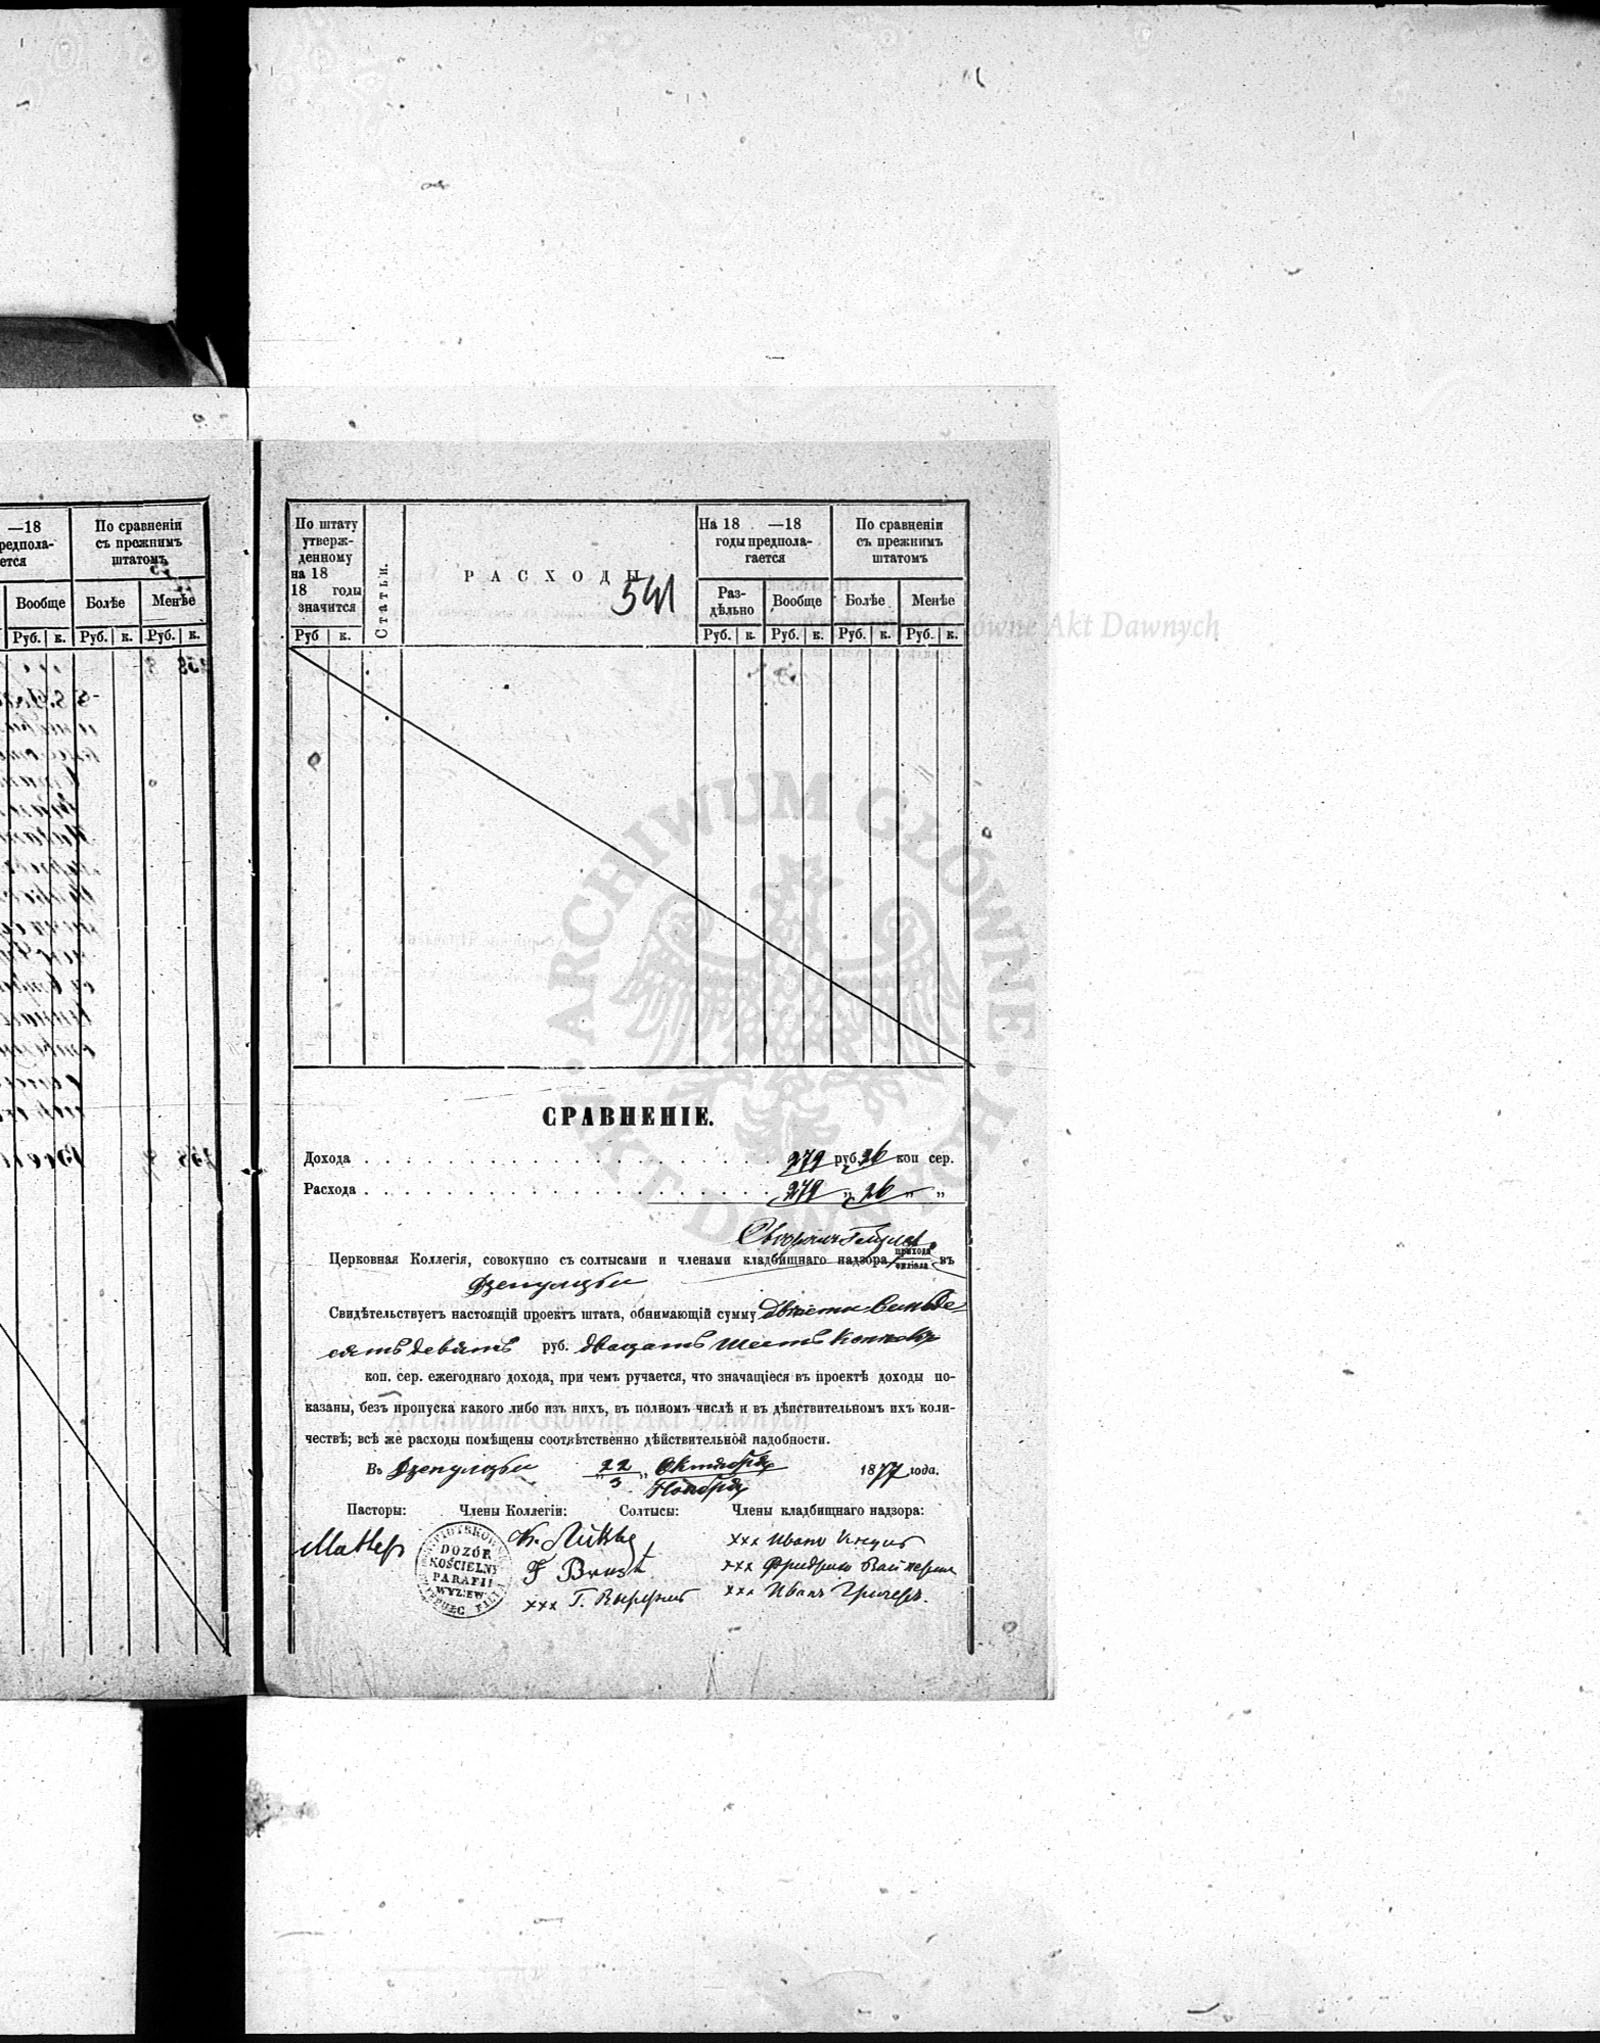 —18
редпола-
ется
По сравненіи
съ прежнимъ
штатомъ
Вообще
Болѣе
Менѣе
Руб. к. Руб. к. Руб. к.
По штату
утверж-
денному
на 18
18 годы
значится
Руб к.
Статьи.
РАСХОДЫ
541
На 18 —18
годы предпола-
гается
Раз-
дѣльно
Вообще
По сравненіи
съ прежнимъ
штатомъ
Болѣе
Менѣе
Руб. к. Руб. к. Руб. к. Руб. к.
Archiwum Główne Akt Dawnych
ARCHIWUM GŁÓWNE AKT DAWNYCH
СРАВНЕНІЕ.
Дохода 279 руб. 26 коп сер.
Расхода 279 „ 26 „ „
Церковная Коллегія, совокупно съ солтысами и членами кладбищнаго надзора прихода филіала въ
Дзепулцьи
Свидѣтельствуетъ настоящій проектъ штата, обнимающій сумму двѣсти семьде-
сятъ девять руб. двацать шесть копѣекъ
коп. сер. ежегоднаго дохода, при чемъ ручается, что значащіеся въ проектѣ доходы по-
казаны, безъ пропуска какого либо изъ нихъ, въ полномъ числѣ и въ дѣйствительномъ ихъ коли-
чествѣ; всѣ же расходы помѣщены соотвѣтственно дѣйствительной надобности.
Archiwum Główne Akt Dawnych
Въ Дзепулцьи „22/3„ Октября/Ноября 1877 года.
Пасторы: Члены Коллегіи: Солтысы: Члены кладбищнаго надзора:
PIOTRKOW
DOZÓR
KOŚCIELNY
PARAFII
WYZIEW
F Brust
xxx Г.
xxx Иванъ
xxx Фридрихъ
xxx Иванъ